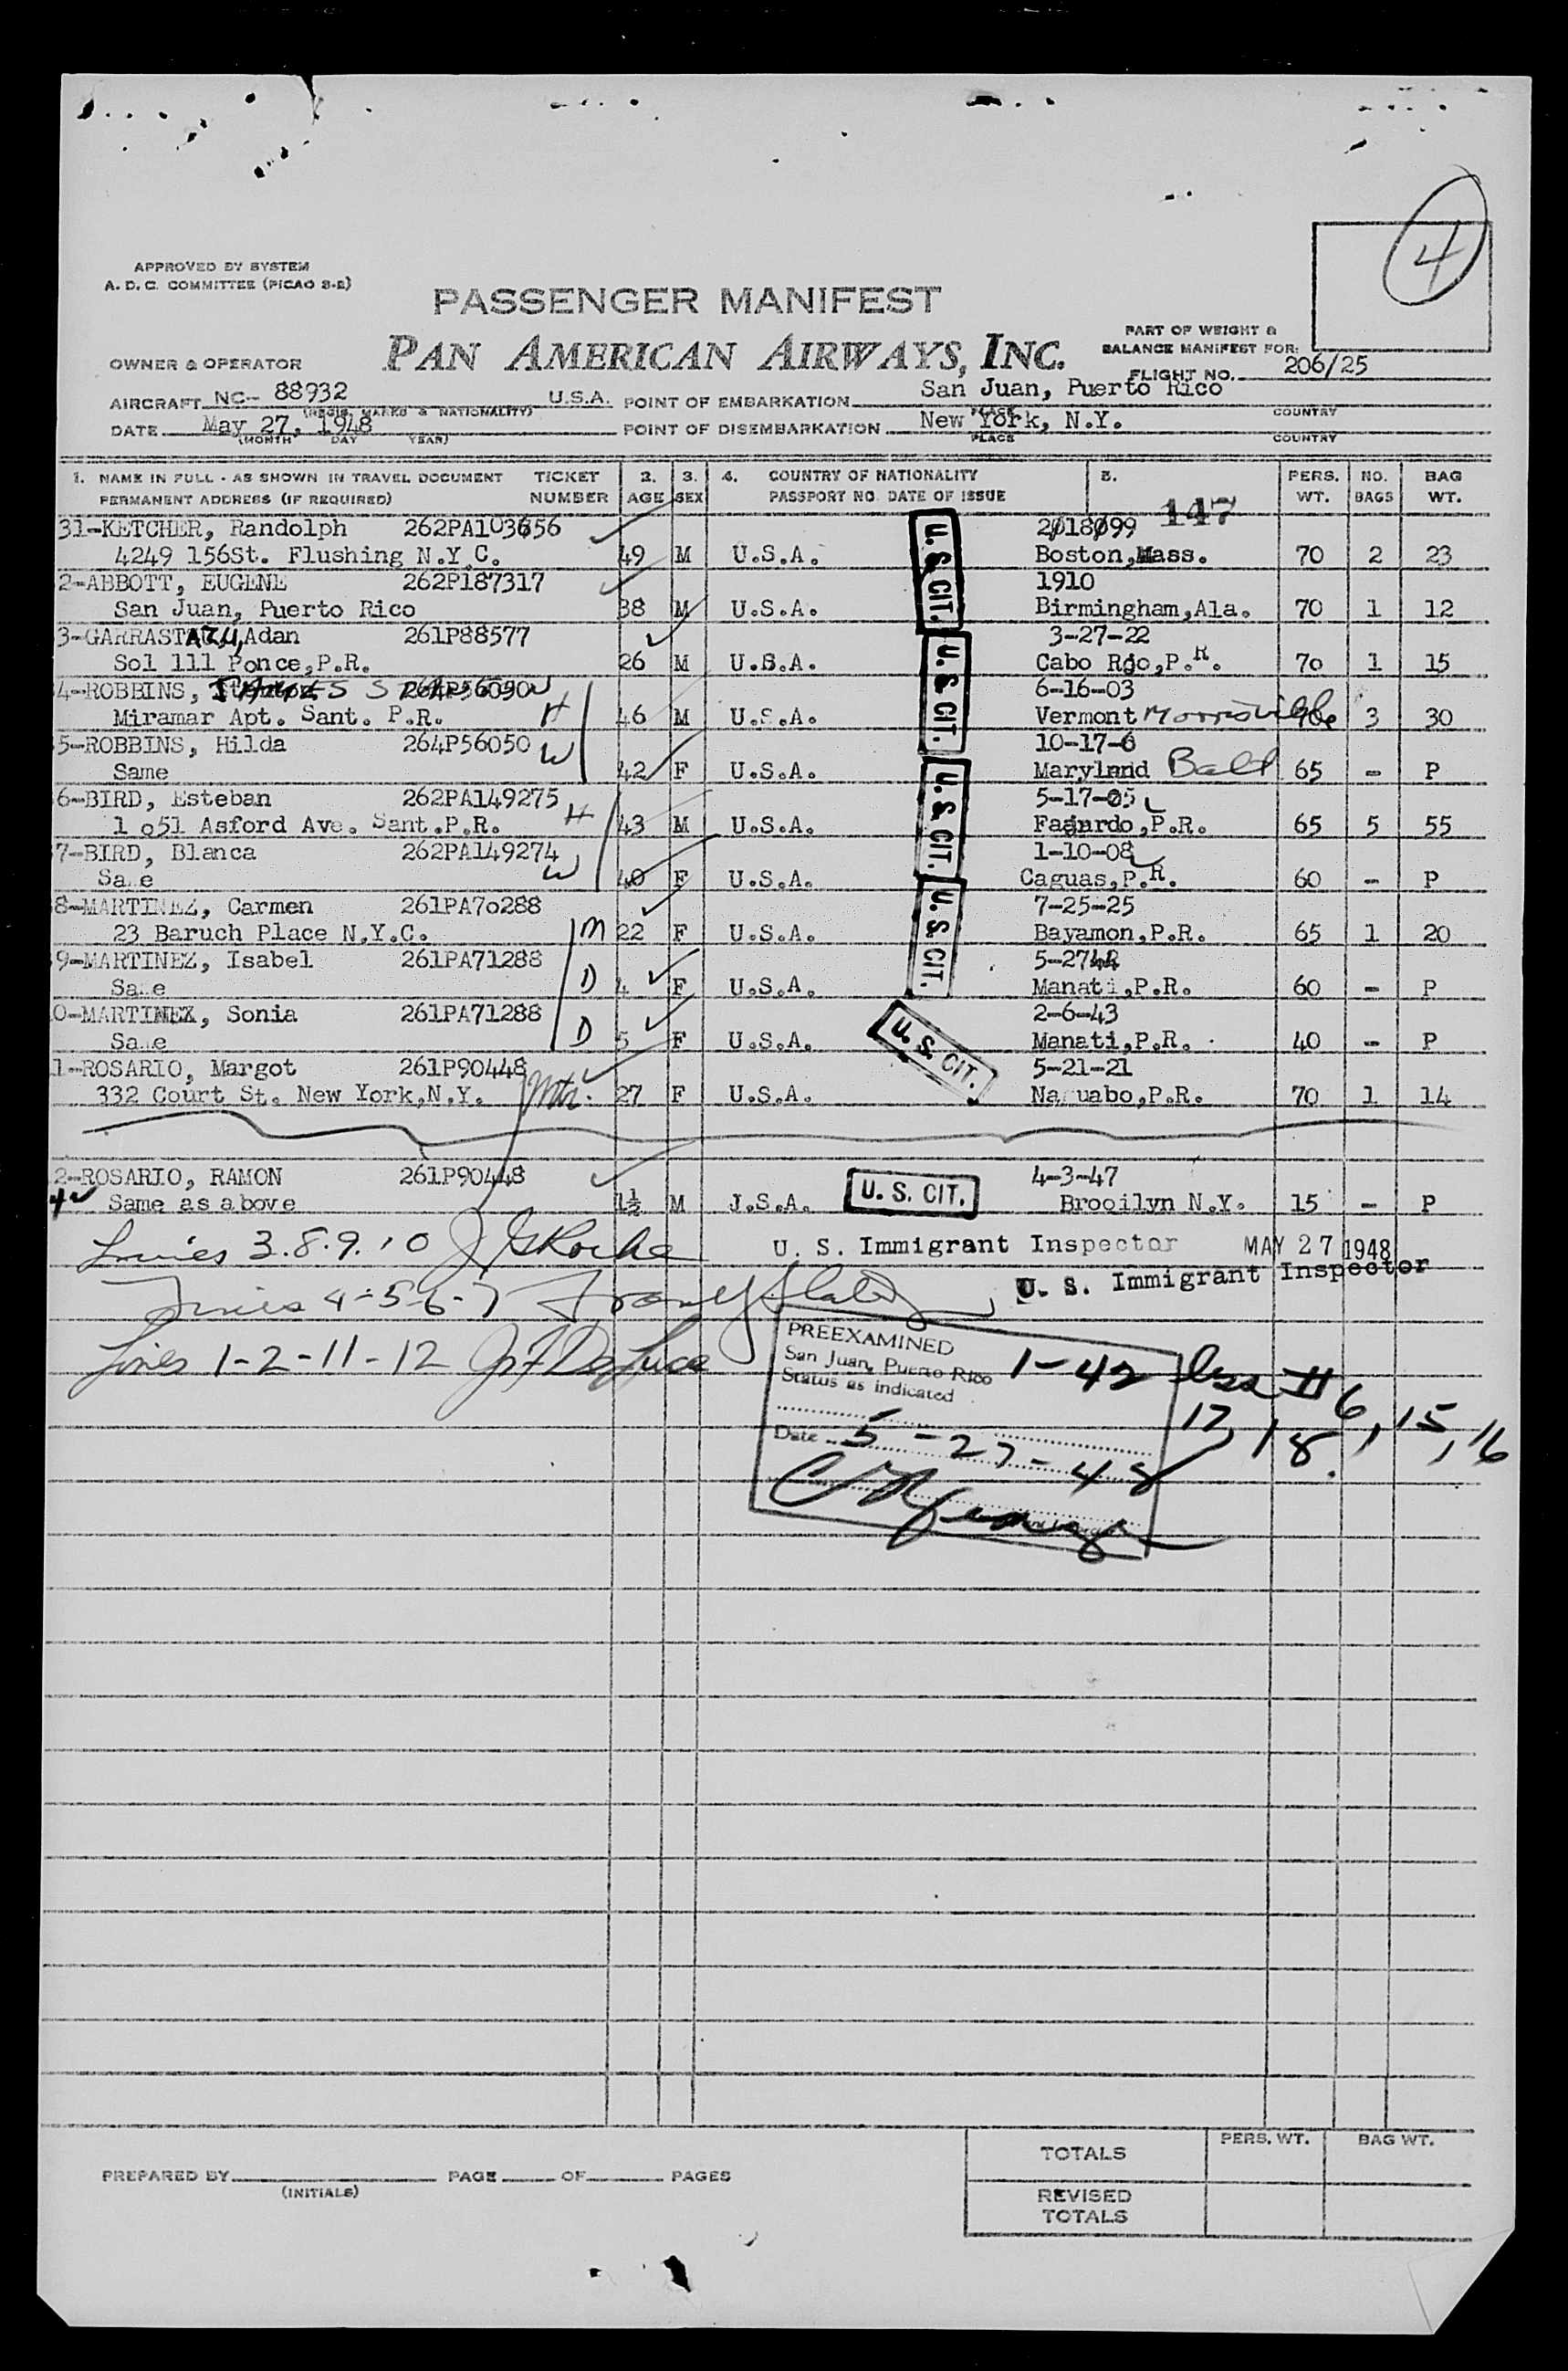 4
APPROVED BY SYSTEM
A. D. C. COMMITTEE (PICAO S-2)
PASSENGER MANIFEST
PAN AMERICAN AIRWAYS, INC.
PART OF WEIGHT &
BALANCE MANIFEST FOR:
OWNER & OPERATOR
FLIGHT NO. 206/25
AIRCRAFT NC- 88932 U.S.A. POINT OF EMBARKATION San Juan, Puerto Rico
(REGIS. MARKS & NATIONALITY) PLACE COUNTRY
DATE May 27, 1948 POINT OF DISEMBARKATION New York, N.Y.
(MONTH DAY YEAR) PLACE COUNTRY
1. NAME IN FULL - AS SHOWN IN TRAVEL DOCUMENT TICKET 2. 3. 4. COUNTRY OF NATIONALITY 5. PERS. NO. BAG
PERMANENT ADDRESS (IF REQUIRED) NUMBER AGE SEX PASSPORT NO. DATE OF ISSUE WT. BAGS WT.
147
31-KETCHER, Randolph 262PA103656 2018099
4249 156St. Flushing N.Y.C. 49 M U.S.A. U.S. CIT. Boston,Mass. 70 2 23
2-ABBOTT, EUGENE 262P187317 1910
San Juan, Puerto Rico 38 M U.S.A. Birmingham,Ala. 70 1 12
3-GARRASTAZU, Adan 261P88577 3-27-22
Sol 111 Ponce,P.R. 26 M U.S.A. U.S. CIT. Cabo Rojo,P.R. 70 1 15
4-ROBBINS, 264P56050 6-16-03
Miramar Apt. Sant. P.R. H 46 M U.S.A. Vermont Morrisville 3 30
5-ROBBINS, Hilda 264P56050 W 10-17-6
Same 42 F U.S.A. U.S. CIT. Maryland Balt 65 - P
6-BIRD, Esteban 262PA149275 H 5-17-05
1o51 Asford Ave. Sant.P.R. 43 M U.S.A. Fajardo,P.R. 65 5 55
7-BIRD, Blanca 262PA149274 W 1-10-08
Sa e 40 F U.S.A. Caguas,P.R. 60 - P
8-MARTINEZ, Carmen 261PA7o288 7-25-25
23 Baruch Place N.Y.C. M 22 F U.S.A. U.S CIT. Bayamon,P.R. 65 1 20
9-MARTINEZ, Isabel 261PA71288 5-2744
Sa e D 4 F U.S.A. Manati,P.R. 60 - P
0-MARTINEZ, Sonia 261PA71288 2-6-43
Sa e D 5 F U.S.A. U. S. CIT. Manati,P.R. 40 - P
1-ROSARIO, Margot 261P90448 5-21-21
332 Court St. New York,N.Y. Mth. 27 F U.S.A. Na uabo,P.R. 70 1 14
2-ROSARIO, RAMON 261P90448 4-3-47
Same as above 1½ M U.S.A. U. S. CIT. Brooilyn N.Y. 15 - P
Lines 3.8.9.10 J G Roche U. S. Immigrant Inspector MAY 27 1948
Lines 4-5-6-7 U. S. Immigrant Inspector
Lines 1-2-11-12
PREEXAMINED
San Juan, Puerto Rico 1-42 less # 6, 15, 16
Status as indicated 17, 18.
Date 5-27-48
PREPARED BY (INITIALS) PAGE OF PAGES
TOTALS PERS. WT. BAG WT.
REVISED
TOTALS